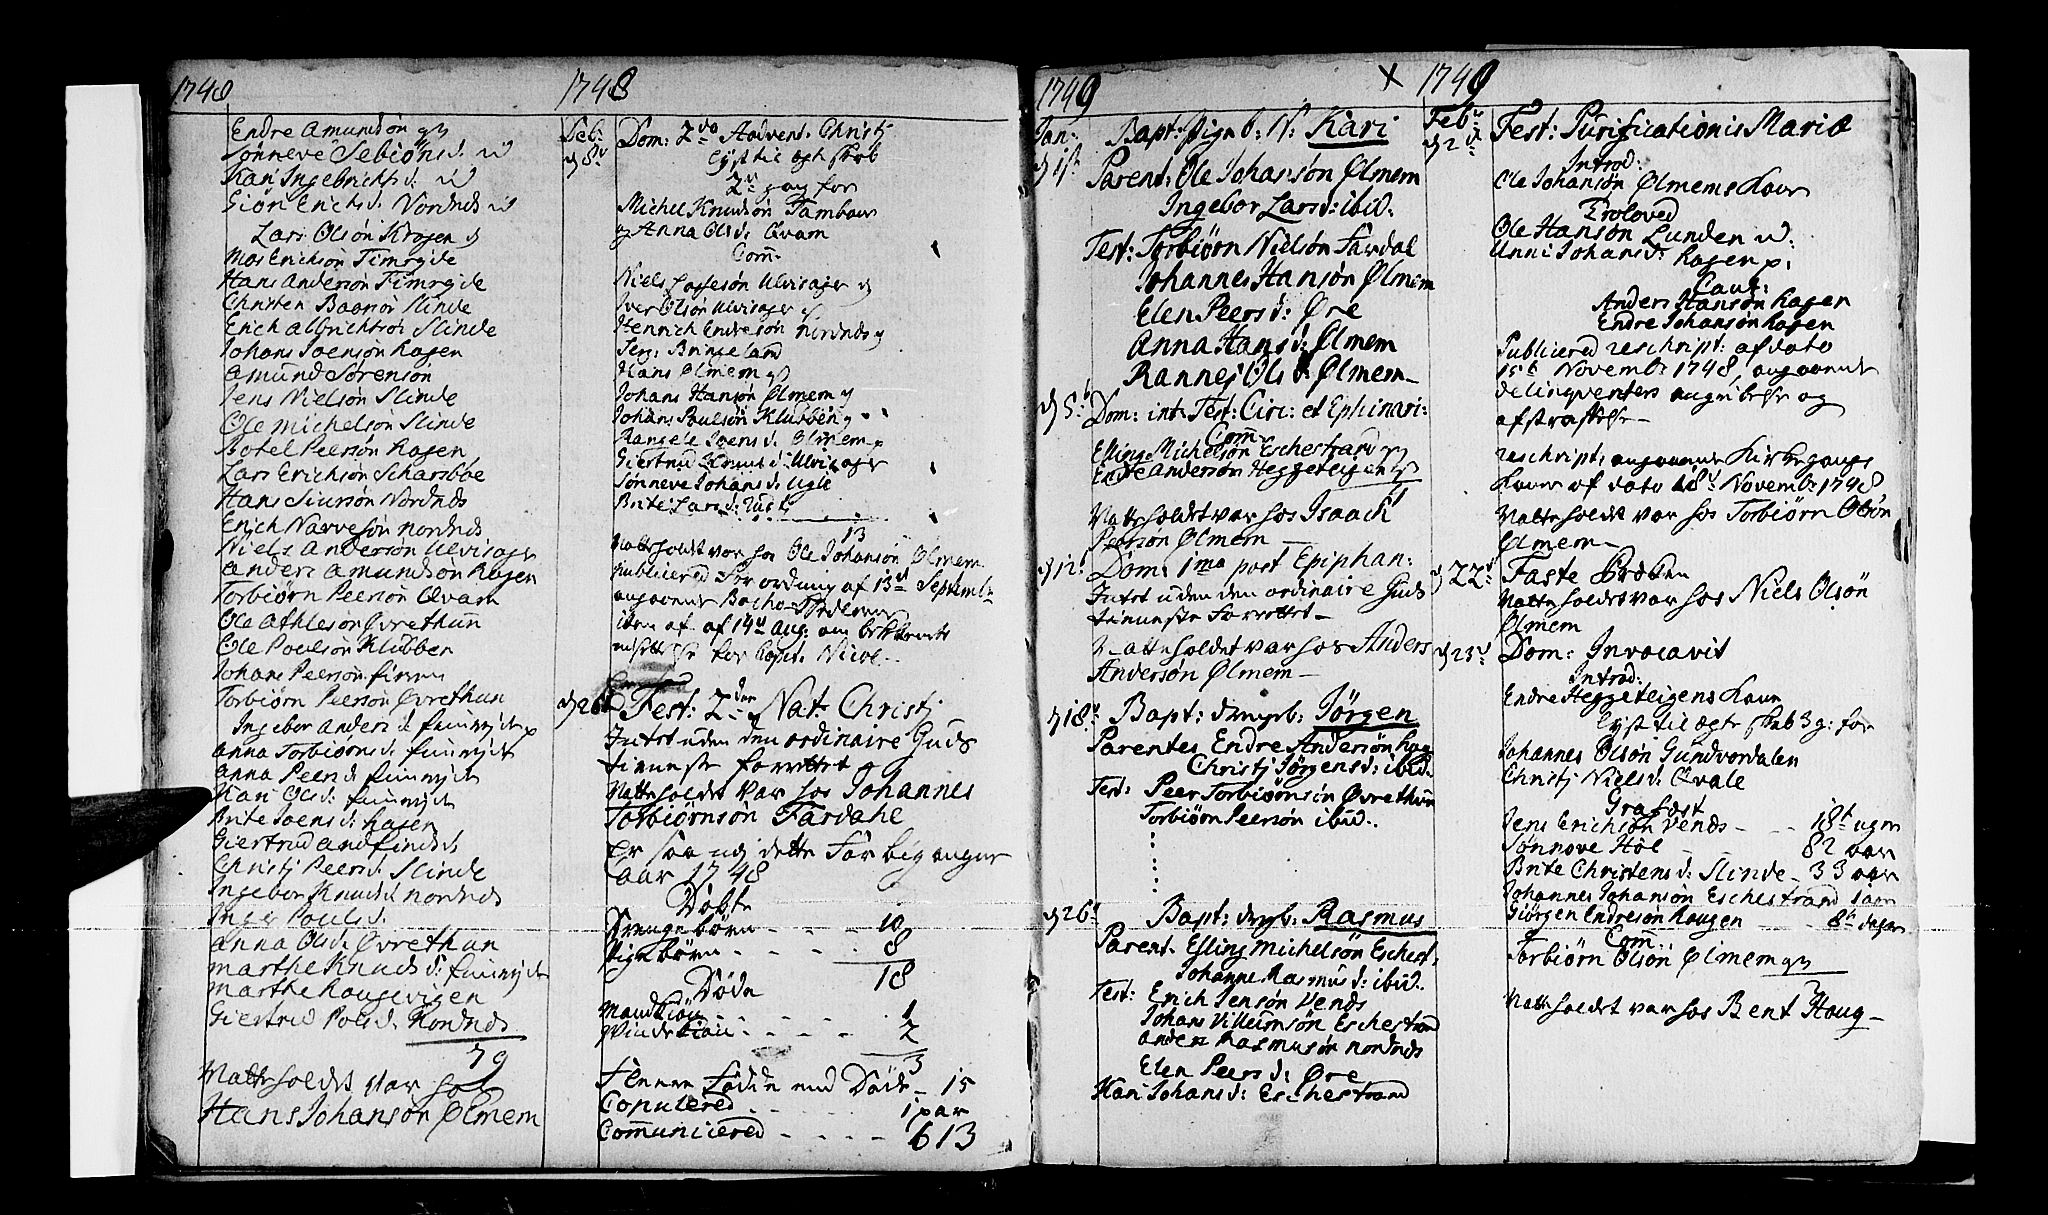 1748
Endre Amundsøn
Sønneve Sebiørnsd:
Kari Ingebrichtsd:
Giør Erichsd: Nordnes
Lars Olsøn Krogen
Mos Erichsøn Timreide
Hans Andersøn Timreide
Christen Baarsøn Slinde
Erich Albrichtsøn Slinde
Johans Joensøn Hagen
Amund Sørensøn
Jens Nielsøn Slinde
Ole Michelsøn Slinde
Botel Peersøn Hagen
Lars Erichsøn Scharsboe
Hans Siursøn Nordnes
Erich Narvesøn Nordnes
Niels Andersøn Ulvisager
Anders Amundsøn Hagen
Torbiørn Peersøn Qvam
Ole Athlesøn Øvrethun
Ole Poulsøn Klubben
Johans Peersøn
Torbiørn Peersøn Øvrethun
Ingebor Andersd:
Anna Torbiørnsd:
Anna Peersd:
Kari Olsd:
Brite Joensd: Hagen
Giertrud
Christj Peersd: Slinde
Ingebor Knudsd: Nordnes
Inger Poulsd:
Anna Olsd: Øvrethun
Marthe Knudsd:
Marthe Haugevigen
Giertrud Polsd: Nordnes
79
Natteholdet var hos
Hans Johansøn Ølmem
1748
Dec:
d 8de
Dom: 2do Advent: Christj
Lyst til Egteskab
2de gang for
Michel Knudsøn Tambour
og Anna Olsd: Qvam
Com̄:
Niels Ulvisager
Iver Olsøn Ulvisager
Henrich Endresøn Nordnes
Serg: Bringeland
Hans Ølmem
Johans Hansøn Ølmem
Johans Poulsøn Klubben
Rangele Joensd: Ølmem
Giertrud Knudsd: Ulvisager
Sønneve Johansd: Ugle
Brite Larsd:
13
Natteholdet var hos Ole Johansøn Ølmem
Publicered Forordning af 13de Septembr
angaaende
item af 14de Aug:
for Capit:
d 26de Fest: 2den Nat: Christj
Intet uden den ordinaire Guds
tieneste forrettet
Natteholdet var hos Johannes
Torbiørnsøn Fardahl
Er saa udj dette Forbigangne
Aar 1748
Døbte
Drengebørn - - - 10
Pigebørn - - - 8
18
Døde
Mandkiøn - - - 1
Qvindekiøn - - - 2
3
Flere Fødde end Døde - 15
Copulered - - - 1 par
Communicered - - - 613
1749
Jan:
d 1ste
Bapt: Pigeb: N: Kari
Parent: Ole Johansøn Ølmem
Ingebor Larsd: ibid:
Test: Torbiørn Nielsøn Fardal
Johannes Hansøn Ølmem
Elen Peersd: Øre
Anna Hansd: Ølmem
Rannej Olsd: Ølmem
d 5te Dom: int: Fest: Circ: et Ephinari:
Com̄:
Elling Michelsøn Eschestrand
Endre Andersøn Heggeteigen
Natteholdet var hos Isaach
Peersøn Ølmem
d 12te Dom: 1ma post Epiphan:
Intet uden den ordinaire Guds
tieneste forrettet
Natteholdet var hos Anders
Andersøn Ølmem
d 18de Bapt: drengb: Jørgen
Parentes Endre Andersøn Hag
Christj Jørgensd: ibid.
Test: Peer Torbiørnsøn Øvrethun
Torbiørn Peersøn ibid..
d 26de Bapt: drengb: Rasmus
Parent: Elling Michelsøn Eschest:
Johanne Rasmusd: ibid..
Test: Erich Jensøn Vends
Johans Villumsøn Eschestrand
Anders Rasmusøn Nordnes
Elen Peersd: Øre
Kari Johansd: Eschestrand
X 1749
Feb:
d 2den
Fest: Purificationis Mariæ
Introd:
Ole Johansøn Ølmems Kone
Troloved
Ole Hansøn Lunden
Unni Johansd: Hagen p:
Caut:
Anders Hansøn Hagen
Endre Johansøn Hagen
Publicered reschript: af dato
15de Novembr 1748, angaaende
delinqventers angribelse og
afstraffelse
reschript: angaaende Kirkegangs
Koner af dato 18de Novembr 1748
Natteholdet var hos Torbiørn Olsøn
Ølmem
d 22de Faste Prøken
Natteholdet var hos Niels Olsøn
Ølmem
d 23de Dom: Invocavit
Introd:
Endre Heggeteigens Kone
Lyst til Egteskab 3 g: for
Johannes Olsøn Gundvordalen
Christj Nielsd: Qvale
Grafæst
Jens Erichsøn Vends - - - 18t uger
Sønnove Høl 82 aar
Brite Christensd: Slinde - 33 aar
Johannes Johansøn Eschestrand 1 aar
Giørgen Endresøn Haugen - - 8t dager
Com̄:
Torbiørn Olsøn Ølmem
Natteholdet var hos Bent Haug